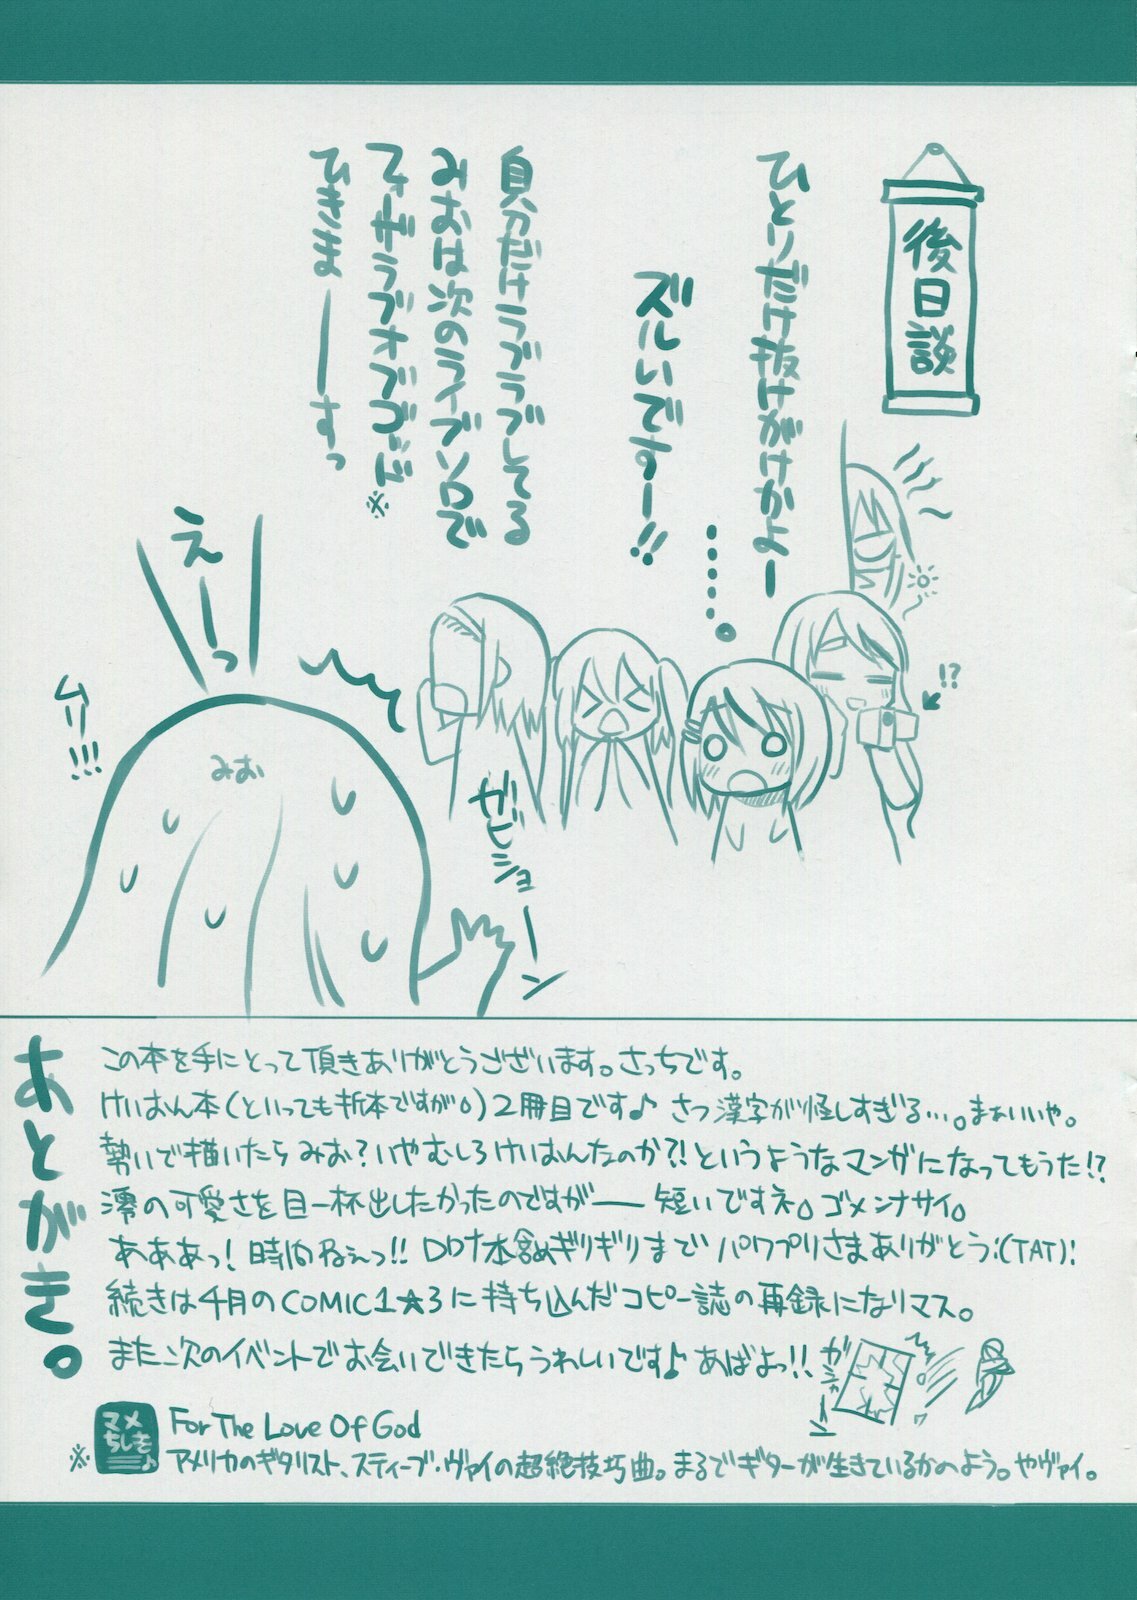 後日談
ひとりだけ抜けがけかよー
・・・・・。
ズルいですー!!
自分だけラブラブしてる
みおは次のライブソロで
フォーザラブオブゴッド※
ひきまーーすっ
!?
えーっ
ムリ!!!
みお
ガビショーン
あとがき。
この本を手にとって頂きありがとうございます。さっちです。
けいおん本(といっても折本ですが。)2冊目です♪ さつ漢字が怪しすぎる…。まぁいいや。
勢いで描いたら みお?いやむしろけいおんなのか?!というようなマンガになってもうた!?
澪の可愛さを目一杯出したかったのですがー 短いですネ。ゴメンナサイ。
あああっ!時間ねぇっ!! ギリギリまで パワプリさまありがとう:(TAT):
続きは4月のCOMIC1★3に持ち込んだコピー誌の再録になりマス。
また次のイベントでお会いできたらうれしいです♪あばよっ!!
ガシャーン
マメちしき♪
For The Love Of God
※アメリカのギタリスト、スティーブ・ヴァイの超絶技巧曲。まるでギターが生きているかのよう。やヴァイ。